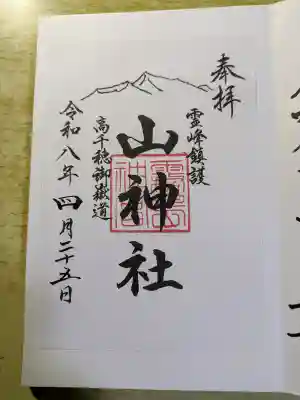 奉拝
霊峰鎮護
山神社
高千穂御嶽道
令和八年四月二十五日